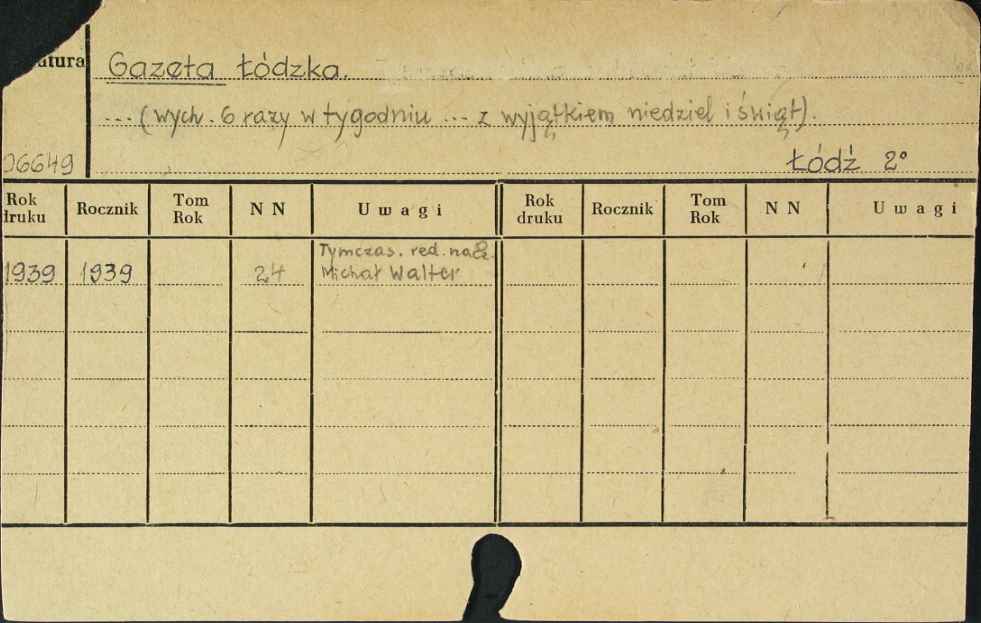 atura
Gazeta Łódzka.
... (wych. 6 razy w tygodniu ... z wyjątkiem niedziel i świąt).
06649
Łódź 2°
Rok druku Rocznik Tom Rok N N Uwagi Rok druku Rocznik Tom Rok N N Uwagi
Tymczas. red. nacz.
1939 1939 24 Michał Walter